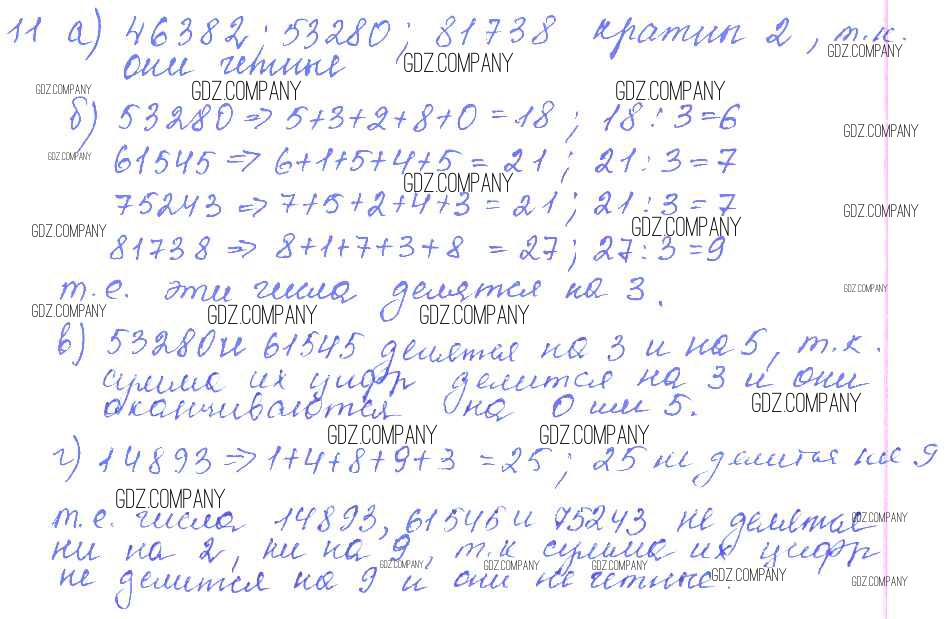 11 а) 46382; 53280; 81738 кратны 2, т.к.
GDZ.COMPANY
они четные GDZ.COMPANY
GDZ.COMPANY GDZ.COMPANY GDZ.COMPANY
б) 53280 => 5+3+2+8+0 = 18; 18 : 3 = 6
GDZ.COMPANY
GDZ.COMPANY 61545 => 6+1+5+4+5 = 21; 21 : 3 = 7
GDZ.COMPANY
75243 => 7+5+2+4+3 = 21; 21 : 3 = 7 GDZ.COMPANY
GDZ.COMPANY GDZ.COMPANY
81738 => 8+1+7+3+8 = 27; 27 : 3 = 9
т.е. эти числа делятся на 3. GDZ.COMPANY
GDZ.COMPANY GDZ.COMPANY GDZ.COMPANY
в) 53280 и 61545 делятся на 3 и на 5, т.к.
сумма их цифр делится на 3 и они
оканчиваются на 0 или 5. GDZ.COMPANY
GDZ.COMPANY GDZ.COMPANY
г) 14893 => 1+4+8+9+3 = 25; 25 не делится на 9
GDZ.COMPANY
т.е. числа 14893, 61545 и 75243 не делятся GDZ.COMPANY
ни на 2, ни на 9, т.к сумма их цифр
GDZ.COMPANY GDZ.COMPANY GDZ.COMPANY
не делится на 9 и они не четные. GDZ.COMPANY GDZ.COMPANY